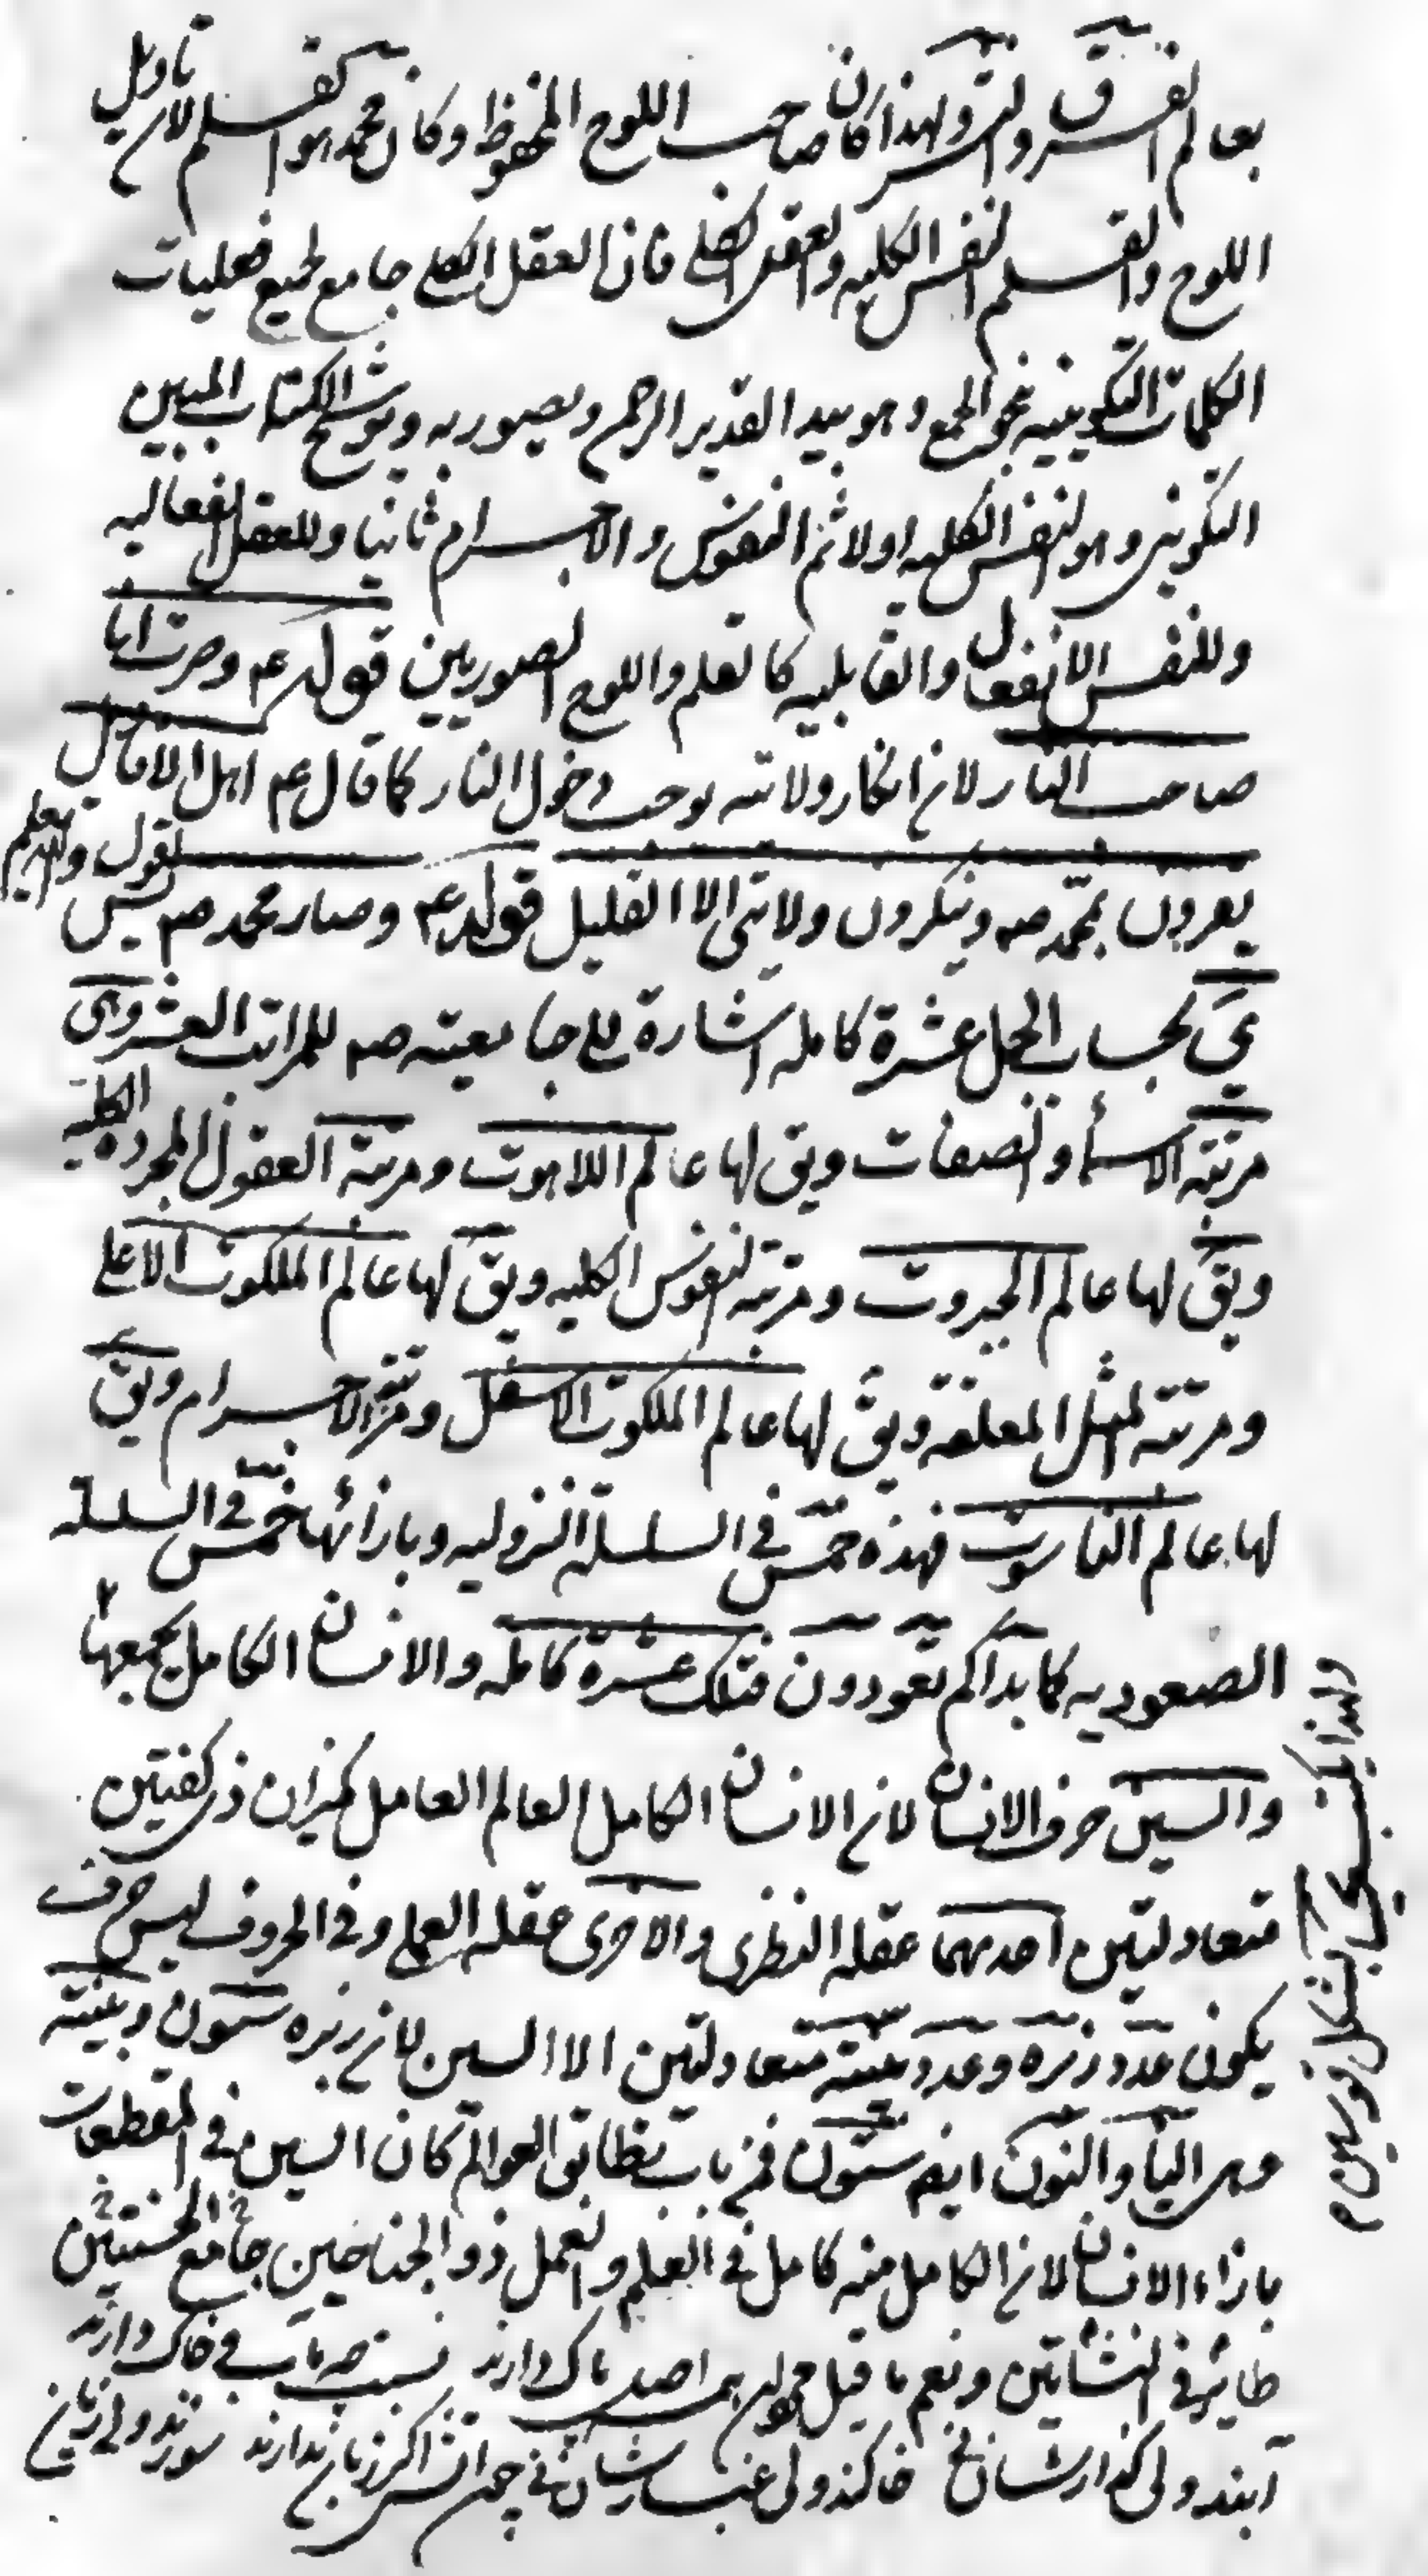 بعالم الفرق والنشر ولهذا كان صاحب اللوح المحفوظ وكان محمد هو القلم لان تاويل
اللوح والقلم النفس الكليه والعقل الكلي فان العقل الكلي جامع لجميع فعليات
الكلمات التكوينيه بنحو الجمع وهو بيد القدير الرحيم ويصور به ويوشح الكتاب المبين
التكويني وهو النفس الكليه اولا ثم النفوس والاجرام ثانيا وللعقل الفعاليه
وللنفس الانفعال والقابليه كالقلم واللوح الصوريين قوله عم وصرت انا
صاحب النار لان انكار ولايته يوجب دخول النار كما قال عم اهل الافاق
يقرون بمحمد صه وينكرون ولايتي الا القليل قوله عم وصار محمد صه يس
يَ بحساب الجمل عشرة كامله اشارة الى جامعيته صه للمراتب العشر وهي
مرتبه الاسماء والصفات ويق لها عالم اللاهوت ومرتبة العقول المجرده الكليه
ويق لها عالم الجبروت ومرتبه النفوس الكليه ويق لها عالم الملكوت الاعلى
ومرتبه المثل المعلقه ويق لها عالم الملكوت الاسفل ومرتبه الاجرام ويق
لها عالم الناسوت فهذه خمس في السلسله النزوليه وبازائها خمس في السلسله
الصعوديه كما بداكم تعودون فتلك عشرة كامله والانسان الكامل يجمعها
والسين حرف الانسان لان الانسان الكامل العالم العامل كميزان ذي كفتين
متعادلتين احديهما عقله النظري والاخرى عقله العملي وفي الحروف ليس حرف
يكون عدد زبره وعدد بينته متعادلتين الا السين لان زبره ستون وبينته
وهي الياء والنون ايضا ستون فمن باب تطابق العوالم كان السين في المقطعات
بازاء الانسان لان الكامل منه كامل في العلم والعمل ذو الجناحين جامع الحسنيين
طاير في النشاتين ونعم ما قيل چون همه اصل پاك دارند نسبت چه باب في خاك دارند
آبند ولي گذارشان ني خاكند ولي غبارشان ني چون آتش اگر زبان ندارند سوزند ولي زيان